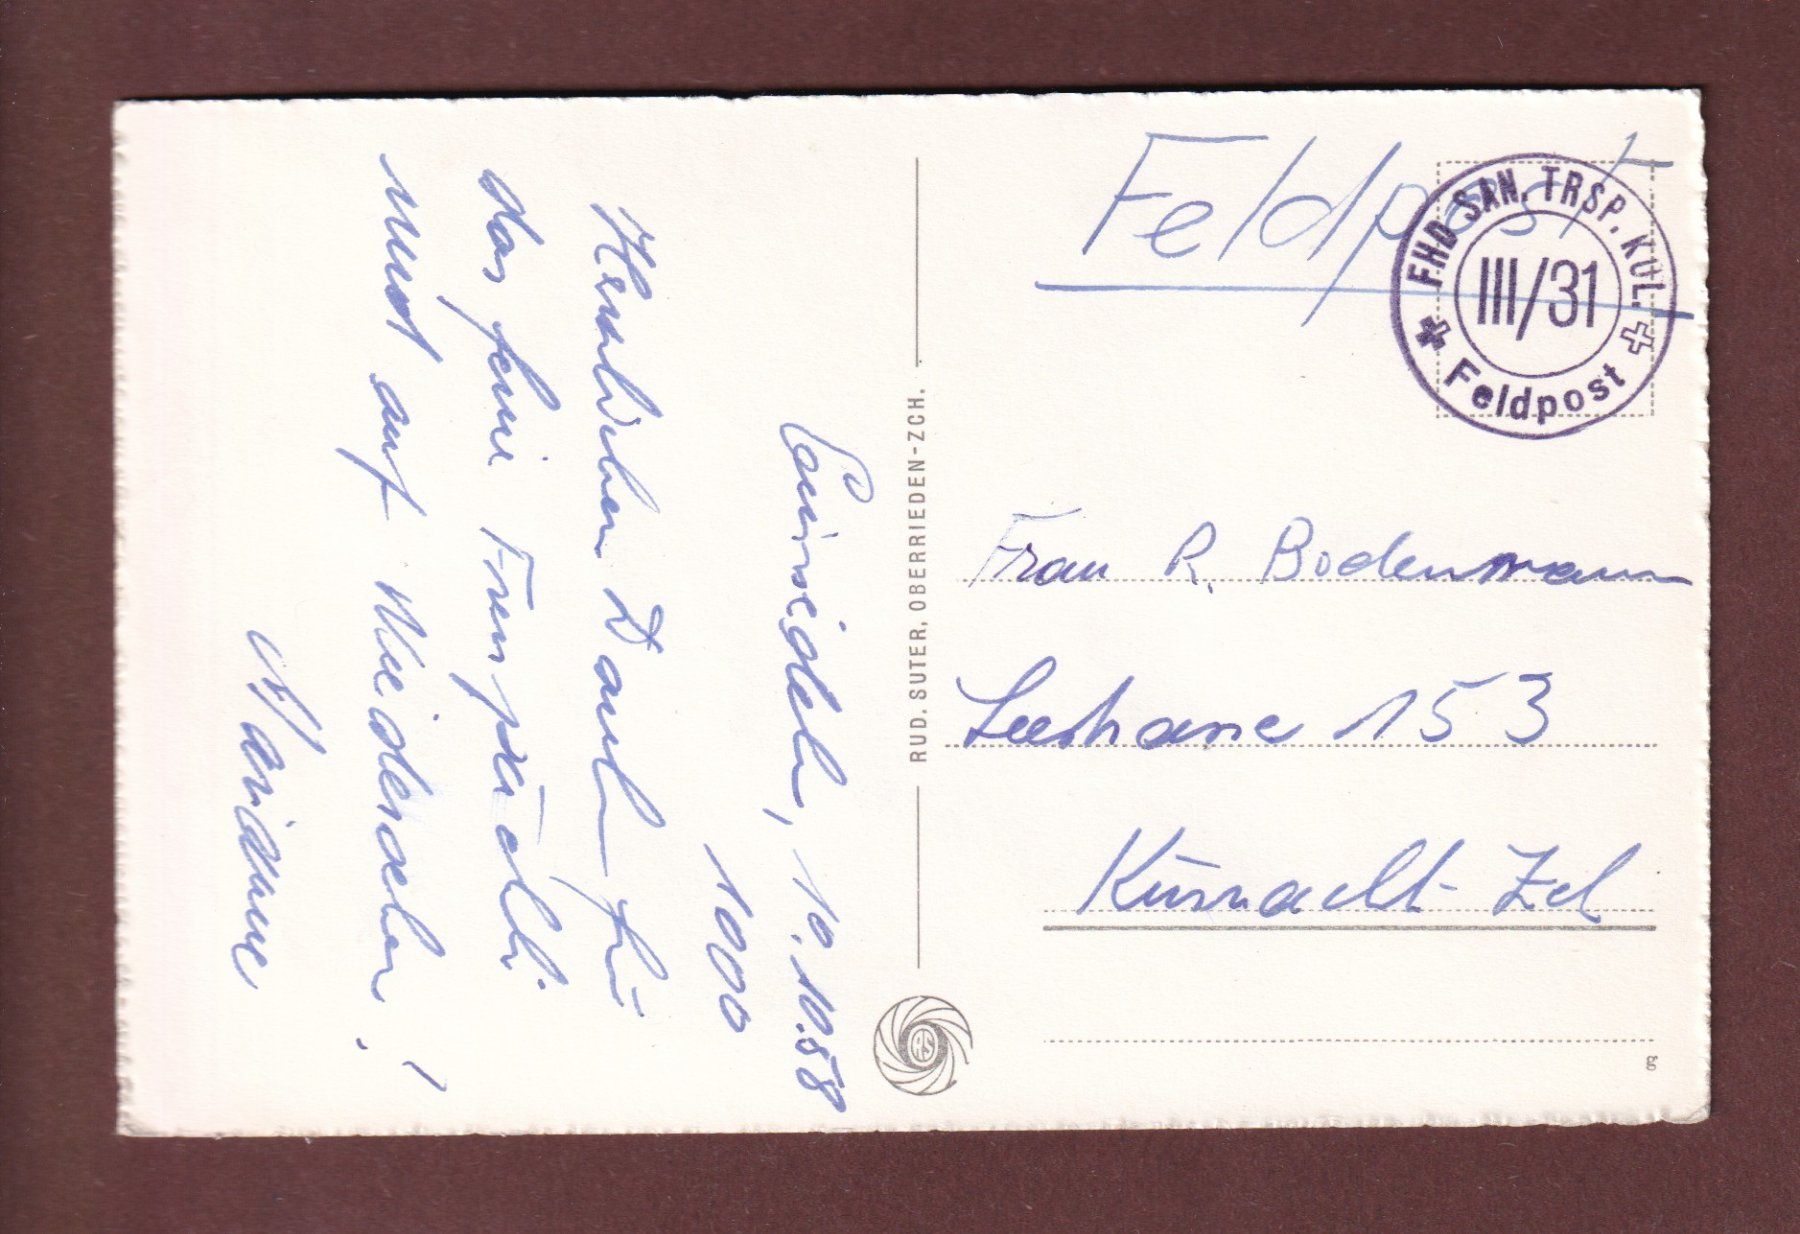 Einsiedeln, 10.10.58
1000
Herzlichen Dank für
das feine Fresspäckli
und auf Wiedersehen!
Marianne
RUD. SUTER, OBERRIEDEN-ZCH.
RS
Feldpost
FHD SAN. TRSP. KOL.
III/31
Feldpost
Frau R. Bodenmann
Seestrasse 153
Küsnacht-Zch
g